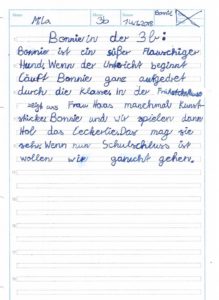 Mila 3b
Bonnie in der 3b:
Bonnie ist ein süßer flauschiger
Hund. Wenn der Unterricht beginnt
läuft Bonnie ganz aufgedret
durch die Klasse. In der Frühstückspause
zeigt uns Frau Haas manchmal Kunst-
stücke. Bonnie und wir spielen dann
Hol das leckerlie. Das mag sie
sehr. Wenn nur Schulschluss ist
wollen wir garnicht gehen.